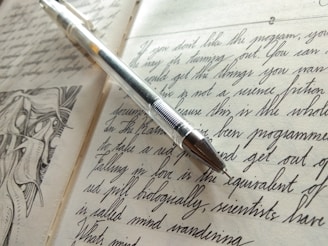 2
If you don't like the program, you
by dumming out. You can
would get the things you wan
is not a science fiction
because this is the whole
in the been programme
to take a red and get out of
Falling in love is the equivalent of
red pill biologically, scientists have
is called mind wandering
What mind